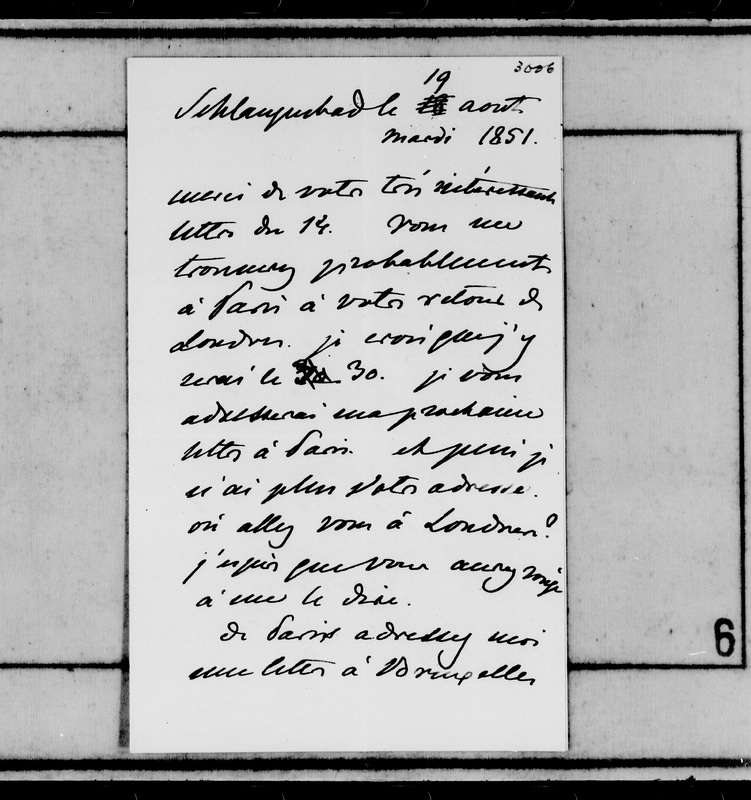 3006
19
Schlangenbad le août
mardi 1851.
merci de votre très intéressante
lettre du 14. vous me
trouverez probablement
à Paris à votre retour de
Londres. je crois que j'y
serai le 30. je vous
adresserai ma prochaine
lettre à Paris. et puis je
n'ai plus votre adresse.
où allez vous à Londres?
j'espère que vous aurez songé
à me le dire.
de Paris adressez moi
une lettre à Bruxelles
6